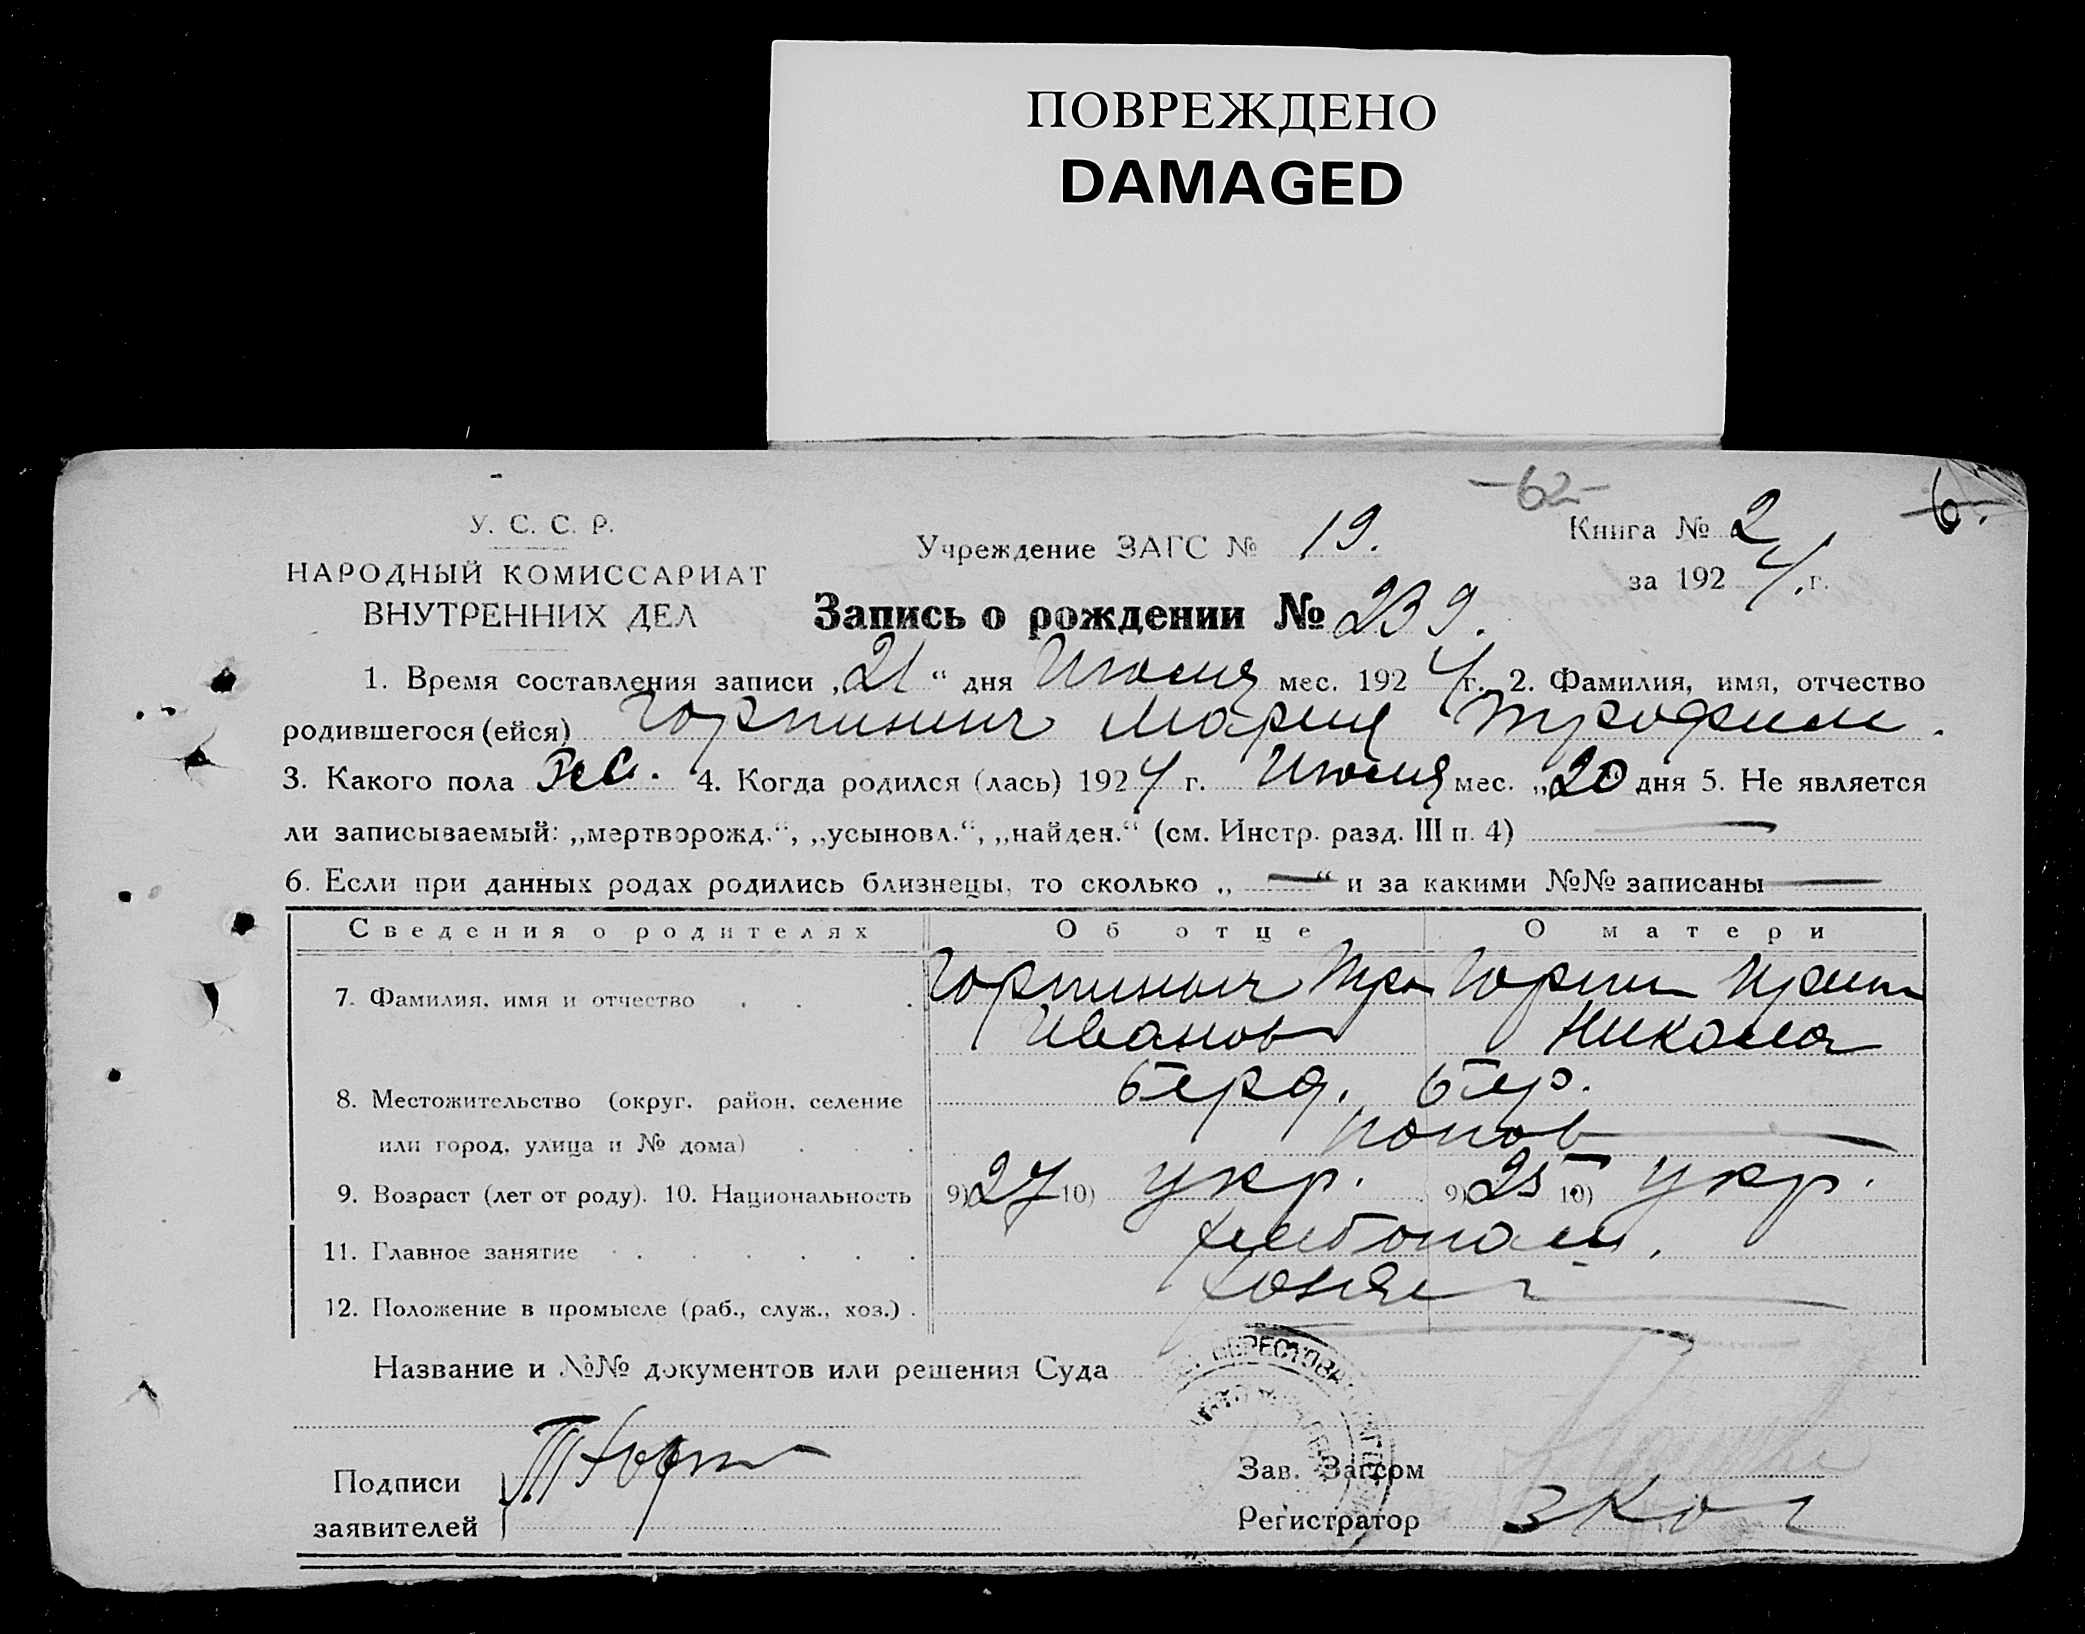 ПОВРЕЖДЕНО
DAMAGED
-62-
6.
У. С. С. Р.
НАРОДНЫЙ КОМИССАРИАТ
ВНУТРЕННИХ ДЕЛ
Учреждение ЗАГС № 19.
Книга № 2
за 1924 г.
Запись о рождении № 239.
1. Время составления записи „21“ дня Июля мес. 1924 г. 2. Фамилия, имя, отчество
родившегося (ейся) Горпинич Мария Трофим.
3. Какого пола жен. 4. Когда родился (лась) 1924 г. Июля мес. „20“ дня 5. Не является
ли записываемый: „мертворожд.“, „усыновл.“, „найден.“ (см. Инстр. разд. III п. 4) —
6. Если при данных родах родились близнецы, то сколько „—“ и за какими №№ записаны —
Сведения о родителях Об отце О матери
7. Фамилия, имя и отчество Горпинич Тро Горпин Ирин
Иванов Никола
8. Местожительство (округ, район, селение Берд. Бер.
или город, улица и № дома) попов
9. Возраст (лет от роду). 10. Национальность 9) 27 10) укр. 9) 25 10) укр.
11. Главное занятие хлебопаш.
12. Положение в промысле (раб., служ., хоз.) хозяе
Название и №№ документов или решения Суда
Подписи
заявителей
Зав. Загсом
Регистратор